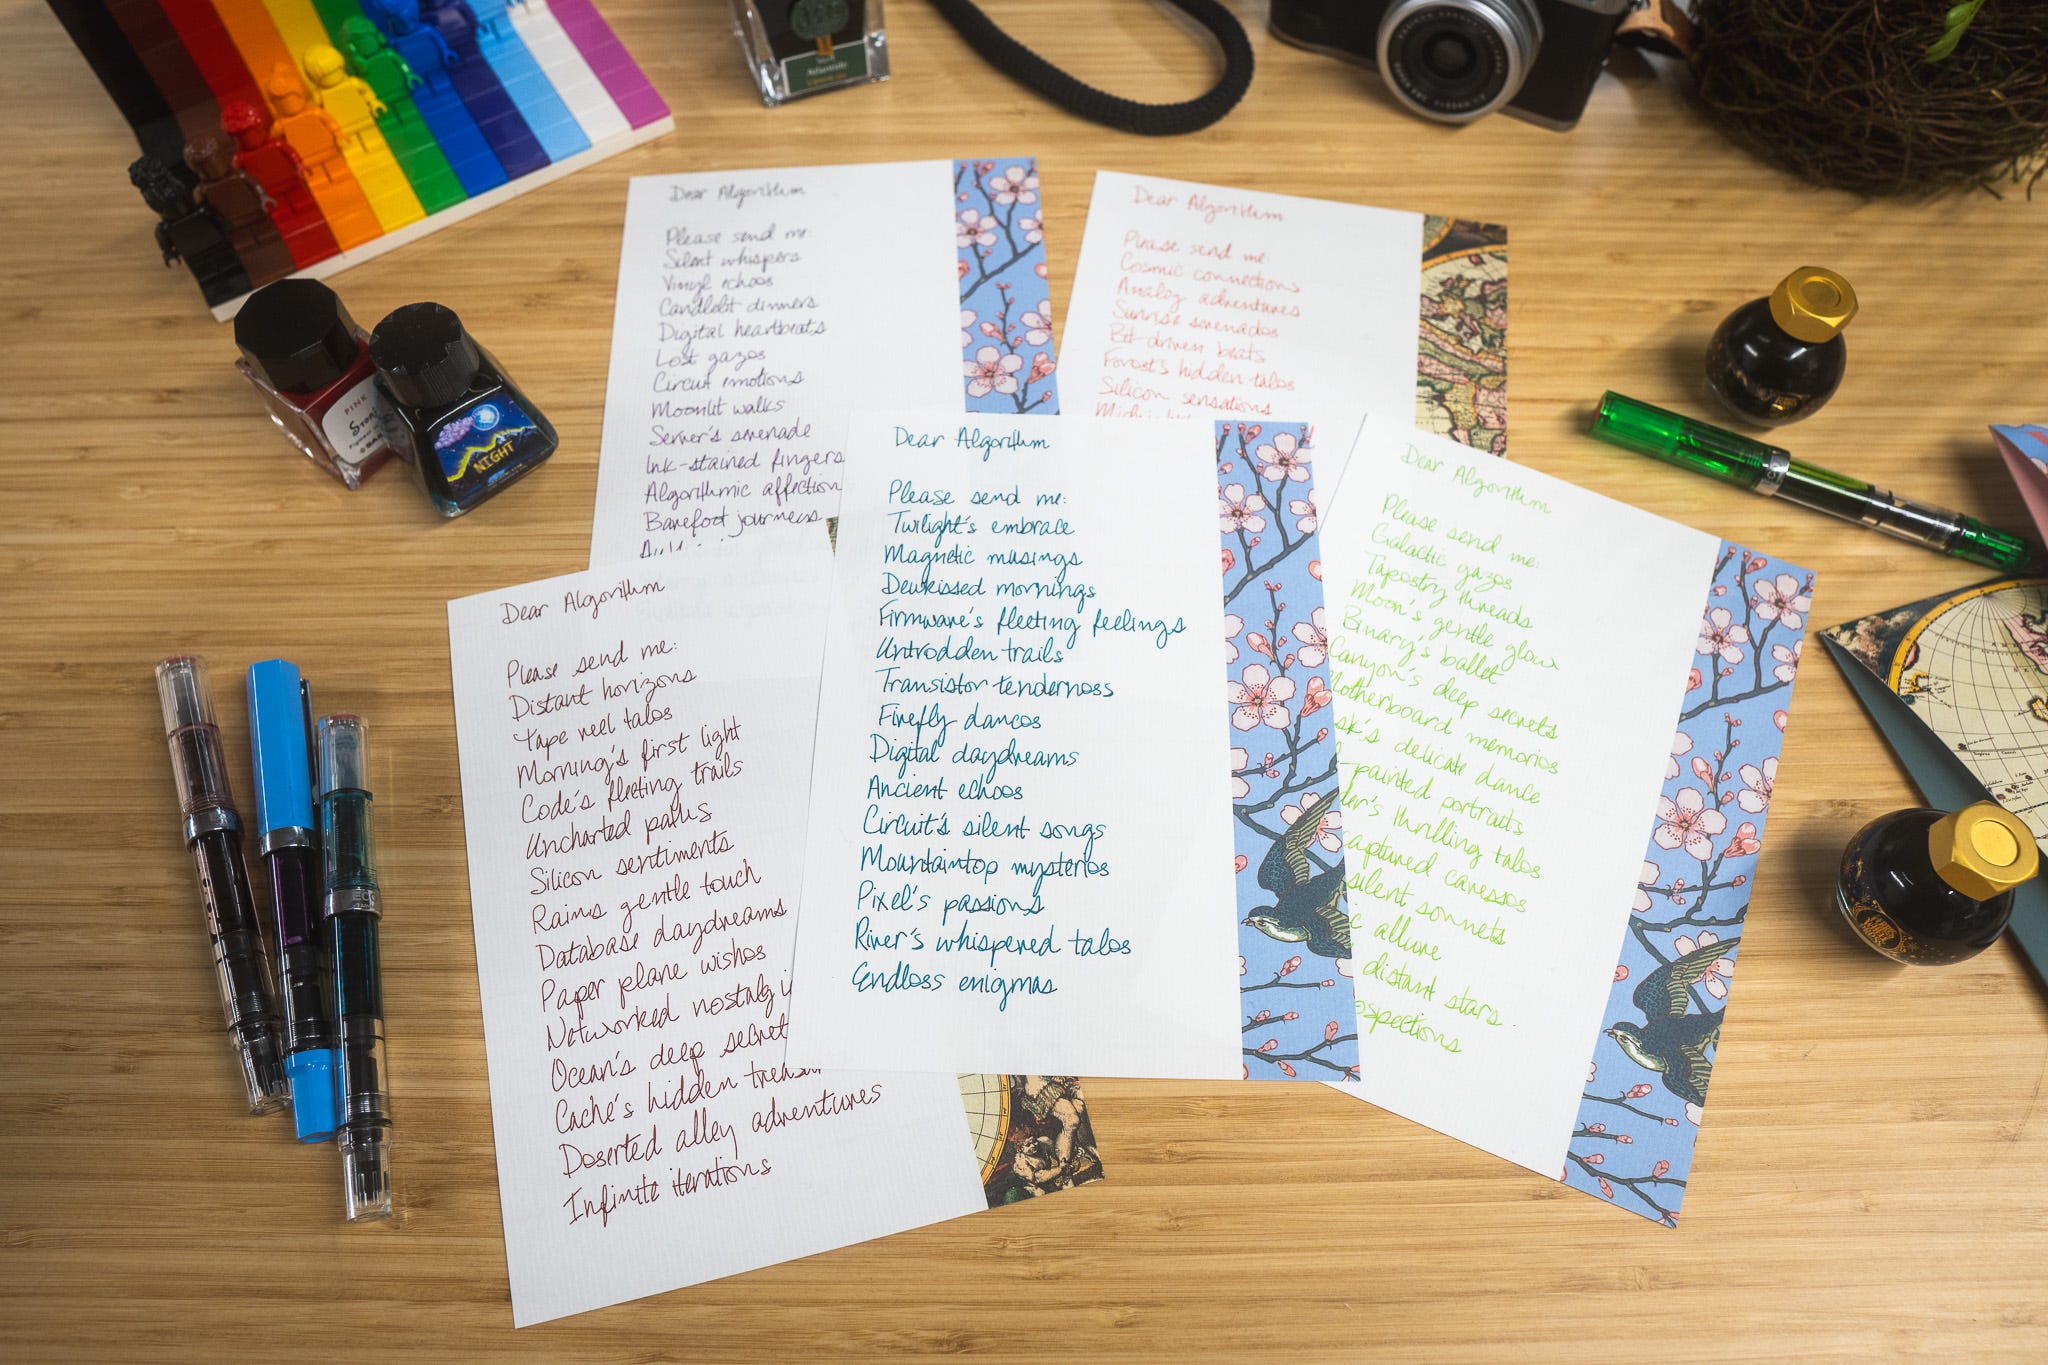 Dear Algorithm
Please send me:
Silent whispers
Vinyl echoes
Candlelit dinners
Digital heartbeats
Lost gazes
Circuit emotions
Moonlit walks
Server's serenade
Ink-stained fingers
Algorithmic affection
Barefoot journeys
Dear Algorithm
Please send me
Cosmic connections
Analog adventures
Sunrise serenades
Bit driven beats
Forest's hidden tales
Silicon sensations
Dear Algorithm
Please send me:
Distant horizons
Tape reel tales
Morning's first light
Code's fleeting trails
Uncharted paths
Silicon sentiments
Rains gentle touch
Database daydreams
Paper plane wishes
Networked nostalgi
Ocean's deep secret
Cache's hidden treasur
Deserted alley adventures
Infinite iterations
Dear Algorithm
Please send me:
Twilight's embrace
Magnetic musings
Dewkissed mornings
Firmware's fleeting feelings
Untrodden trails
Transistor tenderness
Firefly dances
Digital daydreams
Ancient echoes
Circuit's silent songs
Mountaintop mysteries
Pixel's passions
River's whispered tales
Endless enigmas
Dear Algorithm
Please send me:
Galactic gazes
Tapestry threads
Moon's gentle glow
Binary's ballet
Canyon's deep secrets
Motherboard memories
sk's delicate dance
-painted portraits
der's thrilling tales
captured caresses
silent sonnets
c allure
distant stars
ospections
PINK
NIGHT
ECO